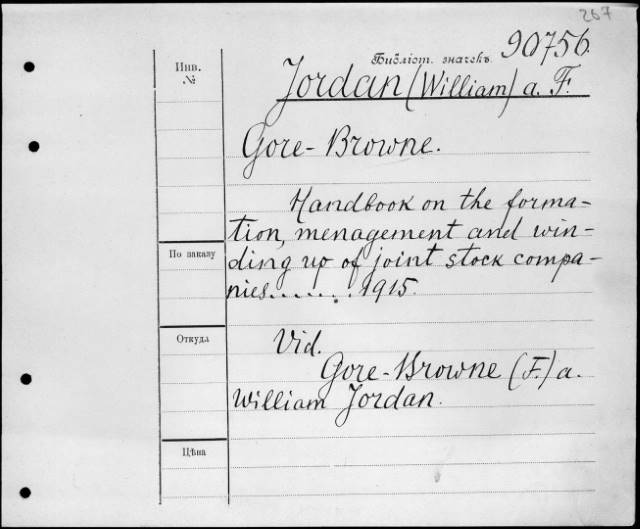 267
90756.
Библіот. значекъ
Инв.
№
Jordan (William) a. F.
Gore-Browne.
Handbook on the forma-
tion, menagement and win-
ding up of joint stock compa-
nies....... 1915.
По заказу
Откуда
Vid.
Gore-Browne (F.) a.
William Jordan.
Цѣна